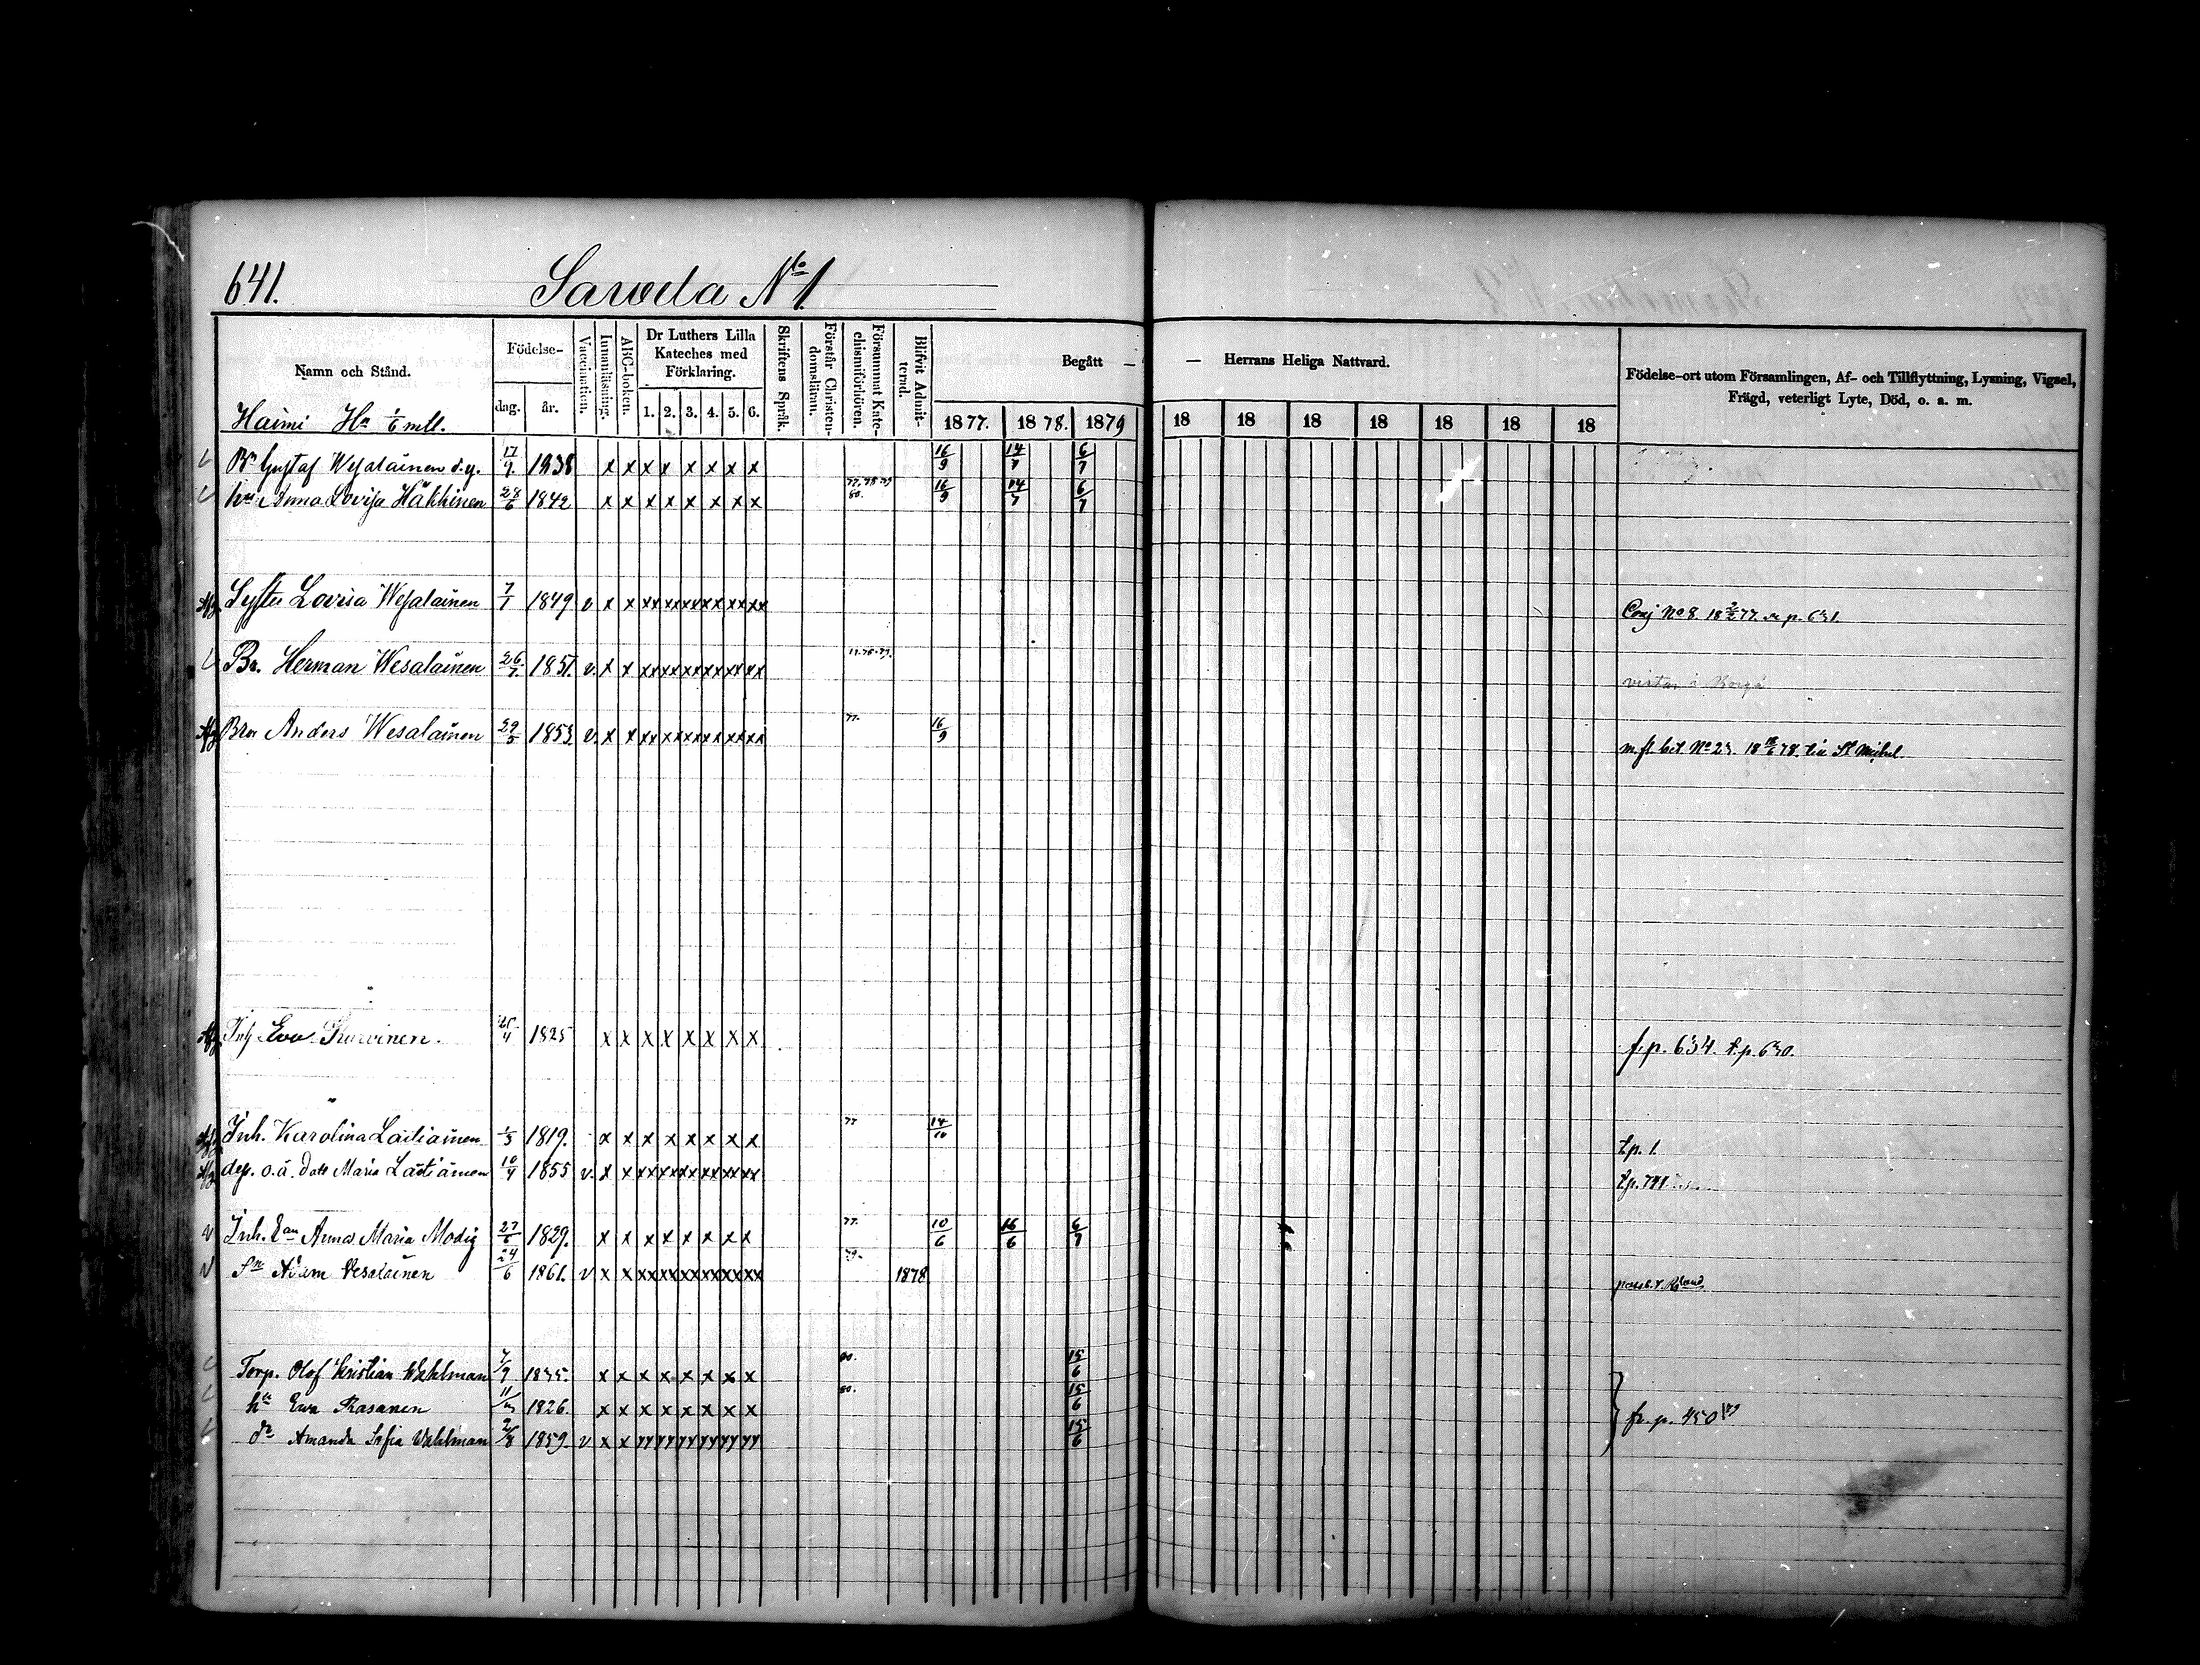 641. Sawela No 1.
Namn och Stånd.
Födelse-
dag. år.
Vaccination.
Innanläsning.
ABC-boken.
Dr Luthers Lilla Kateches med Förklaring.
1. 2. 3. 4. 5. 6.
Skriftens Språk.
Förstår Christen-domsläran.
Försummat Kate-chismiförhören.
Blifvit Admit-terad.
Begått — — Herrans Heliga Nattvard.
1877. 1878. 1879 18 18 18 18 18 18 18
Födelse-ort utom Församlingen, Af- och Tillflyttning, Lysning, Vigsel, Frägd, veterligt Lyte, Död, o. a. m.
Haimi Hn 1/6 mtl.
Gustaf Wesalainen d.y. 17/9 1838 x x x x x x x x 16/9 14/7 6/7
hu Anna Lovisa Häkkinen 28/6 1842 x x x x x x x x 77.78.79 80. 16/9 14/7 6/7
Syster Lovisa Wesalainen 7/7 1849 v x x xx xx xx xx xx xx Conj No 8. 18 2/2 77. p. 631.
Br. Herman Wesalainen 26/7 1851. v. x x xx xx xx xx xx xx 77.78.79. vistas i Borgå
Bro Anders Wesalainen 29/5 1853 v. x x xx xx xx xx xx xx 77. 16/9 m. fl. bet. No 23. 18 78. till St Michel.
Inh Eva 1825 x x x x x x x x f.p. 634. t.p. 630.
Inh. Karolina Laitiainen 1/5 1819. x x x x x x x x 77 14/10 t.p. 1.
dess o.ä. dotr Maria Laitiainen 10/4 1855 v. x x xx xx xx xx xx xx t.p. 741.
Inh. Ean Anna Maria Modig 27/6 1829. x x x x x x x x 77. 10/6 16/6 6/7
Sn Adam Vesalainen 24/6 1861. v x x xx xx xx xx xx xx 79. 1878
Torp. Olof Kristian Wahlman 7/9 1835. x x x x x x x x 80. 15/6
hu Ewa Rasanen 1826. x x x x x x x x 80. 15/6
dr Amanda Sofia Wahlman 2/8 1859. v x x xx xx xx xx xx xx 15/6
fr. p. 450